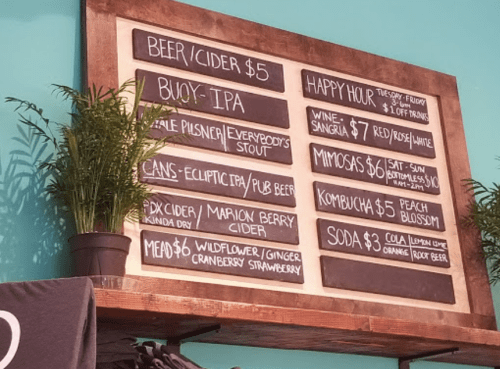 BEER/CIDER $5
BUOY-IPA
PILSNER EVERYBODY'S
STOUT
CANS-ECLIPTIC IPA/PUB BEER
PDX CIDER/ MARION BERRY
KINDA DRY CIDER
MEAD $6 WILDFLOWER/GINGER
CRANBERRY STRAWBERRY
HAPPY HOUR TUESDAY-FRIDAY
3-6PM
$1 OFF DRINKS
WINE- SANGRIA $7 RED/ROSE/WHITE
MIMOSAS $6 SAT-SUN
BOTTOMLESS
11AM-2PM
KOMBUCHA $5 PEACH
BLOSSOM
SODA $3 COLA LEMON LIME
ORANGE ROOT BEER